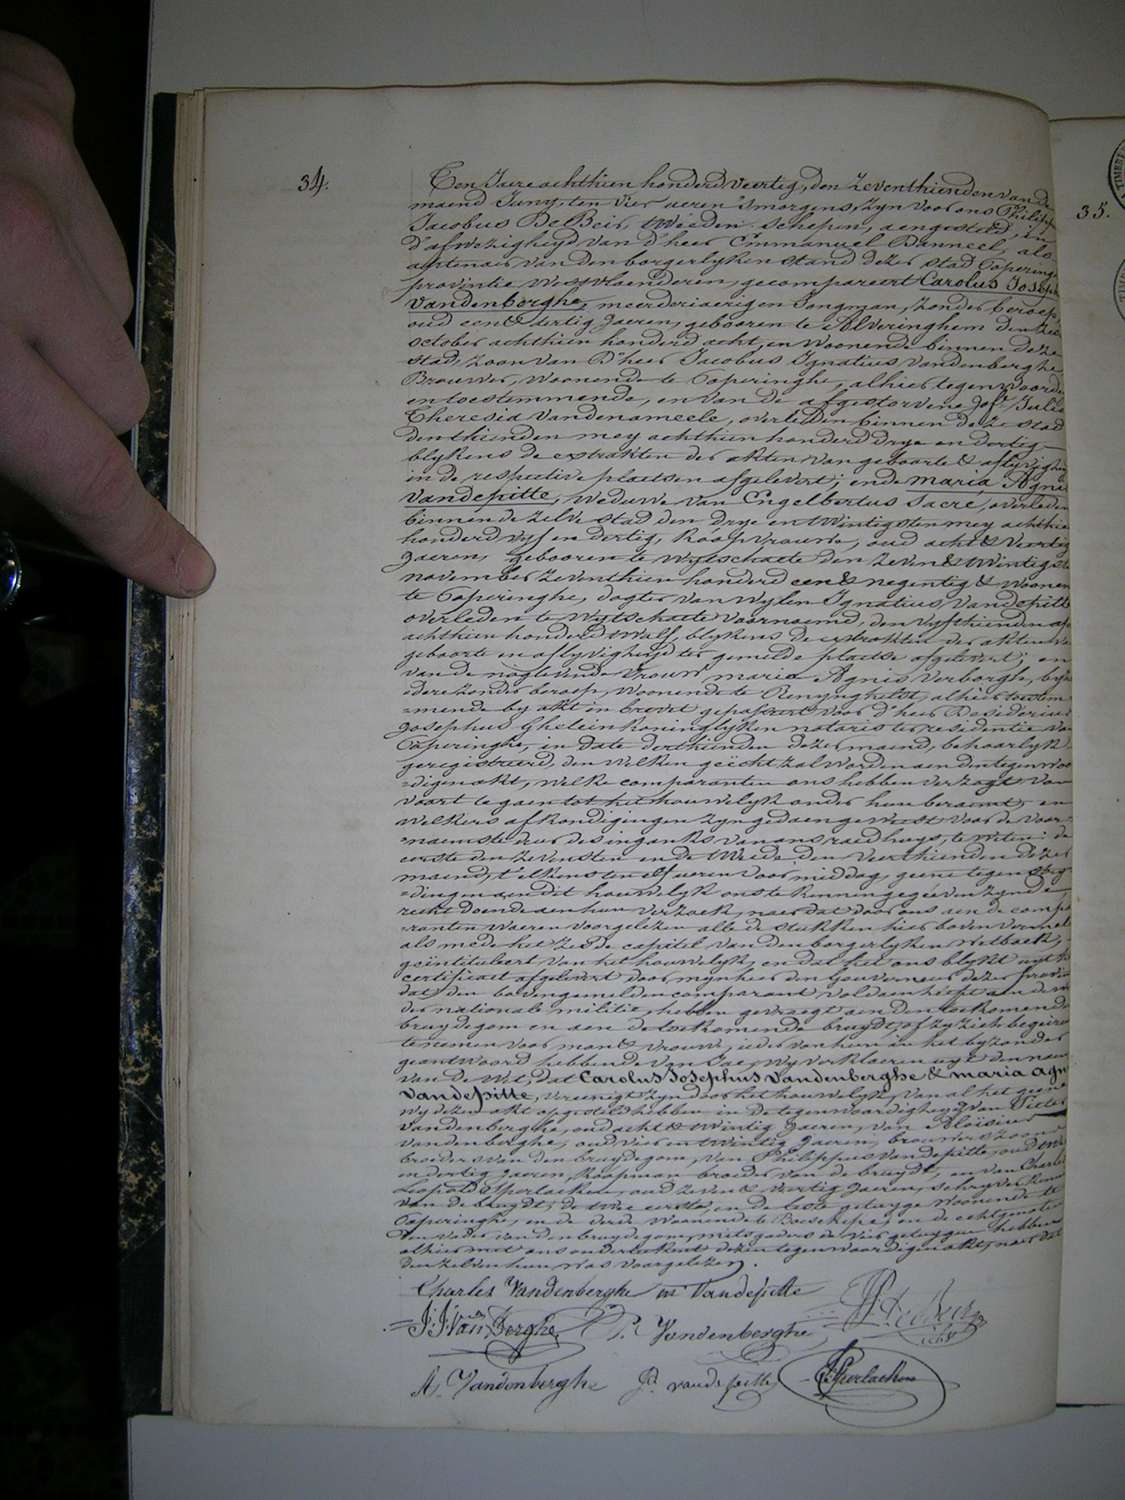 34.
Ten Jaere achthien honderd veertig, den zeventhienden van de
maend Juny, ten vier ueren 's morgens, zyn voor ons Philippe
Jacobus De Beir, tweeden schepen, aengesteld, in
d'afwezigheyd van d'heer Emmanuel Vanneel, als
ambtenaer van den borgerlyken stand dezer stad Poperinge
provintie Westvlaenderen, gecompareert Carolus Joseph
Vandenberghe, meerderjaerigen Jongman, zonder beroep,
oud een & dertig Jaeren, gebooren te Alveringhem den
october achthien honderd acht, en woonende binnen deze
stad, zoon van D'heer Jacobus Ignatius Vandenberghe
Brouwer, woonende te Poperinghe, alhier tegenwoordig
en toestemmende, en van de afgestorvene Jof. Julia
Theresia Vandenameele, overleden binnen deze stad
den thienden mey achthien honderd drye en dertig
blykens de extrakten der akten van geboorte & aflyvigheyd
in de respective plaetsen afgelevert; ende Maria Agnes
Vandepitte, weduwe van Engelbertus Sacré, overleden
binnen dezelve stad den drye en twintigsten mey achthien
honderd vyf en dertig, Koopvrouw, oud acht & veertig
Jaeren, gebooren te Wytschaete den zeven & twintigsten
november zeventhien honderd een & negentig & woonende
te Poperinghe, dogter van wylen Ignatius Vandepitte
overleden te Wytschaete voornoemd, den vyfthienden
achthien honderd twalf, blykens de extrakten der akten van
geboorte en aflyvigheyd ter gemelde plaetse afgelevert; en
van de nog levende vrouw Maria Agnes Verborgh,
zonder beroep, woonende te Renynghelst, alhier toestem-
mende by akt in brevet gepasseert voor d'heer Desiderius
Josephus Ghelein koninglyken notaris ter residentie van
Poperinghe, in date derthienden dezer maend, behoorlyk
geregistreerd, den welken geëcht zal worden aen den tegenwoor-
digen akt, welke comparanten ons hebben verzogt van
voort te gaen tot het houwelyk onder hun beraemt, en
welkers afkondigingen zyn gedaen geweest voor de voor-
naemste deur des ingangs van ons raedhuys, te weten: de
eerste den zevensten en de tweede den veerthienden dezer
maend, t'elkens ten elf ueren voor middag, geene tegenstry-
dingen aen dit houwelyk ons te kennen gegeéven zynde,
recht doende aen hun verzoek, naer dat door ons aen de compa-
ranten waeren voorgelezen alle de stukken hier boven vermeld
als mede het zesde capitel van den borgerlyken wetboek,
geintituleert van het houwelyk, en dat het ons blykt uyt het
certificaet afgelevert door mynheer den Gouverneur dezer provintie
dat den bovengemelden comparant voldaen heeft aen de wet
der nationale militie, hebben gevraegt aen den toekomenden
bruydegom en aen de toekomende bruydt, of zy zich begeiren
te nemen voor man & vrouw, ieder van hun in het byzonder
geantwoord hebbende van Jae, wy verklaeren uyt den naem
van de wet, dat Carolus Josephus Vandenberghe & Maria Agnes
Vandepitte, vereenigt zyn door het houwelyk, van al het geene
wy dezen akt opgesteld hebben in de tegenwoordigheyd van Pieter
Vandenberghe, oud acht & twintig Jaeren, van Aloïsius
Vandenberghe, oud vier en twintig Jaeren, brouwers zoonen
broeders van den bruydegom, van Philippus Vandepitte, oud
en dertig Jaeren, Koopman broeder van de bruydt, en van Charles
Leopold Sperlacken, oud zeven & veertig Jaeren, schryver
van de bruydt; de twee eerste, en de leste getuyge woonende te
Poperinghe, en de derde woonende te Boeschepe, en de echtgenoten
den vader van den bruydegom, mitsgaders de vier getuygen hebben
alhier met ons onderteekent dezen tegenwoordigen akt, naer dat
den zelven hun was voorgelezen.
Charles Vandenberghe m Vandepitte
J: J Van den Berghe P. Vandenberghe PJ De Beir
A. Vandenberghe Ph vandepitte Sperlacken
35.